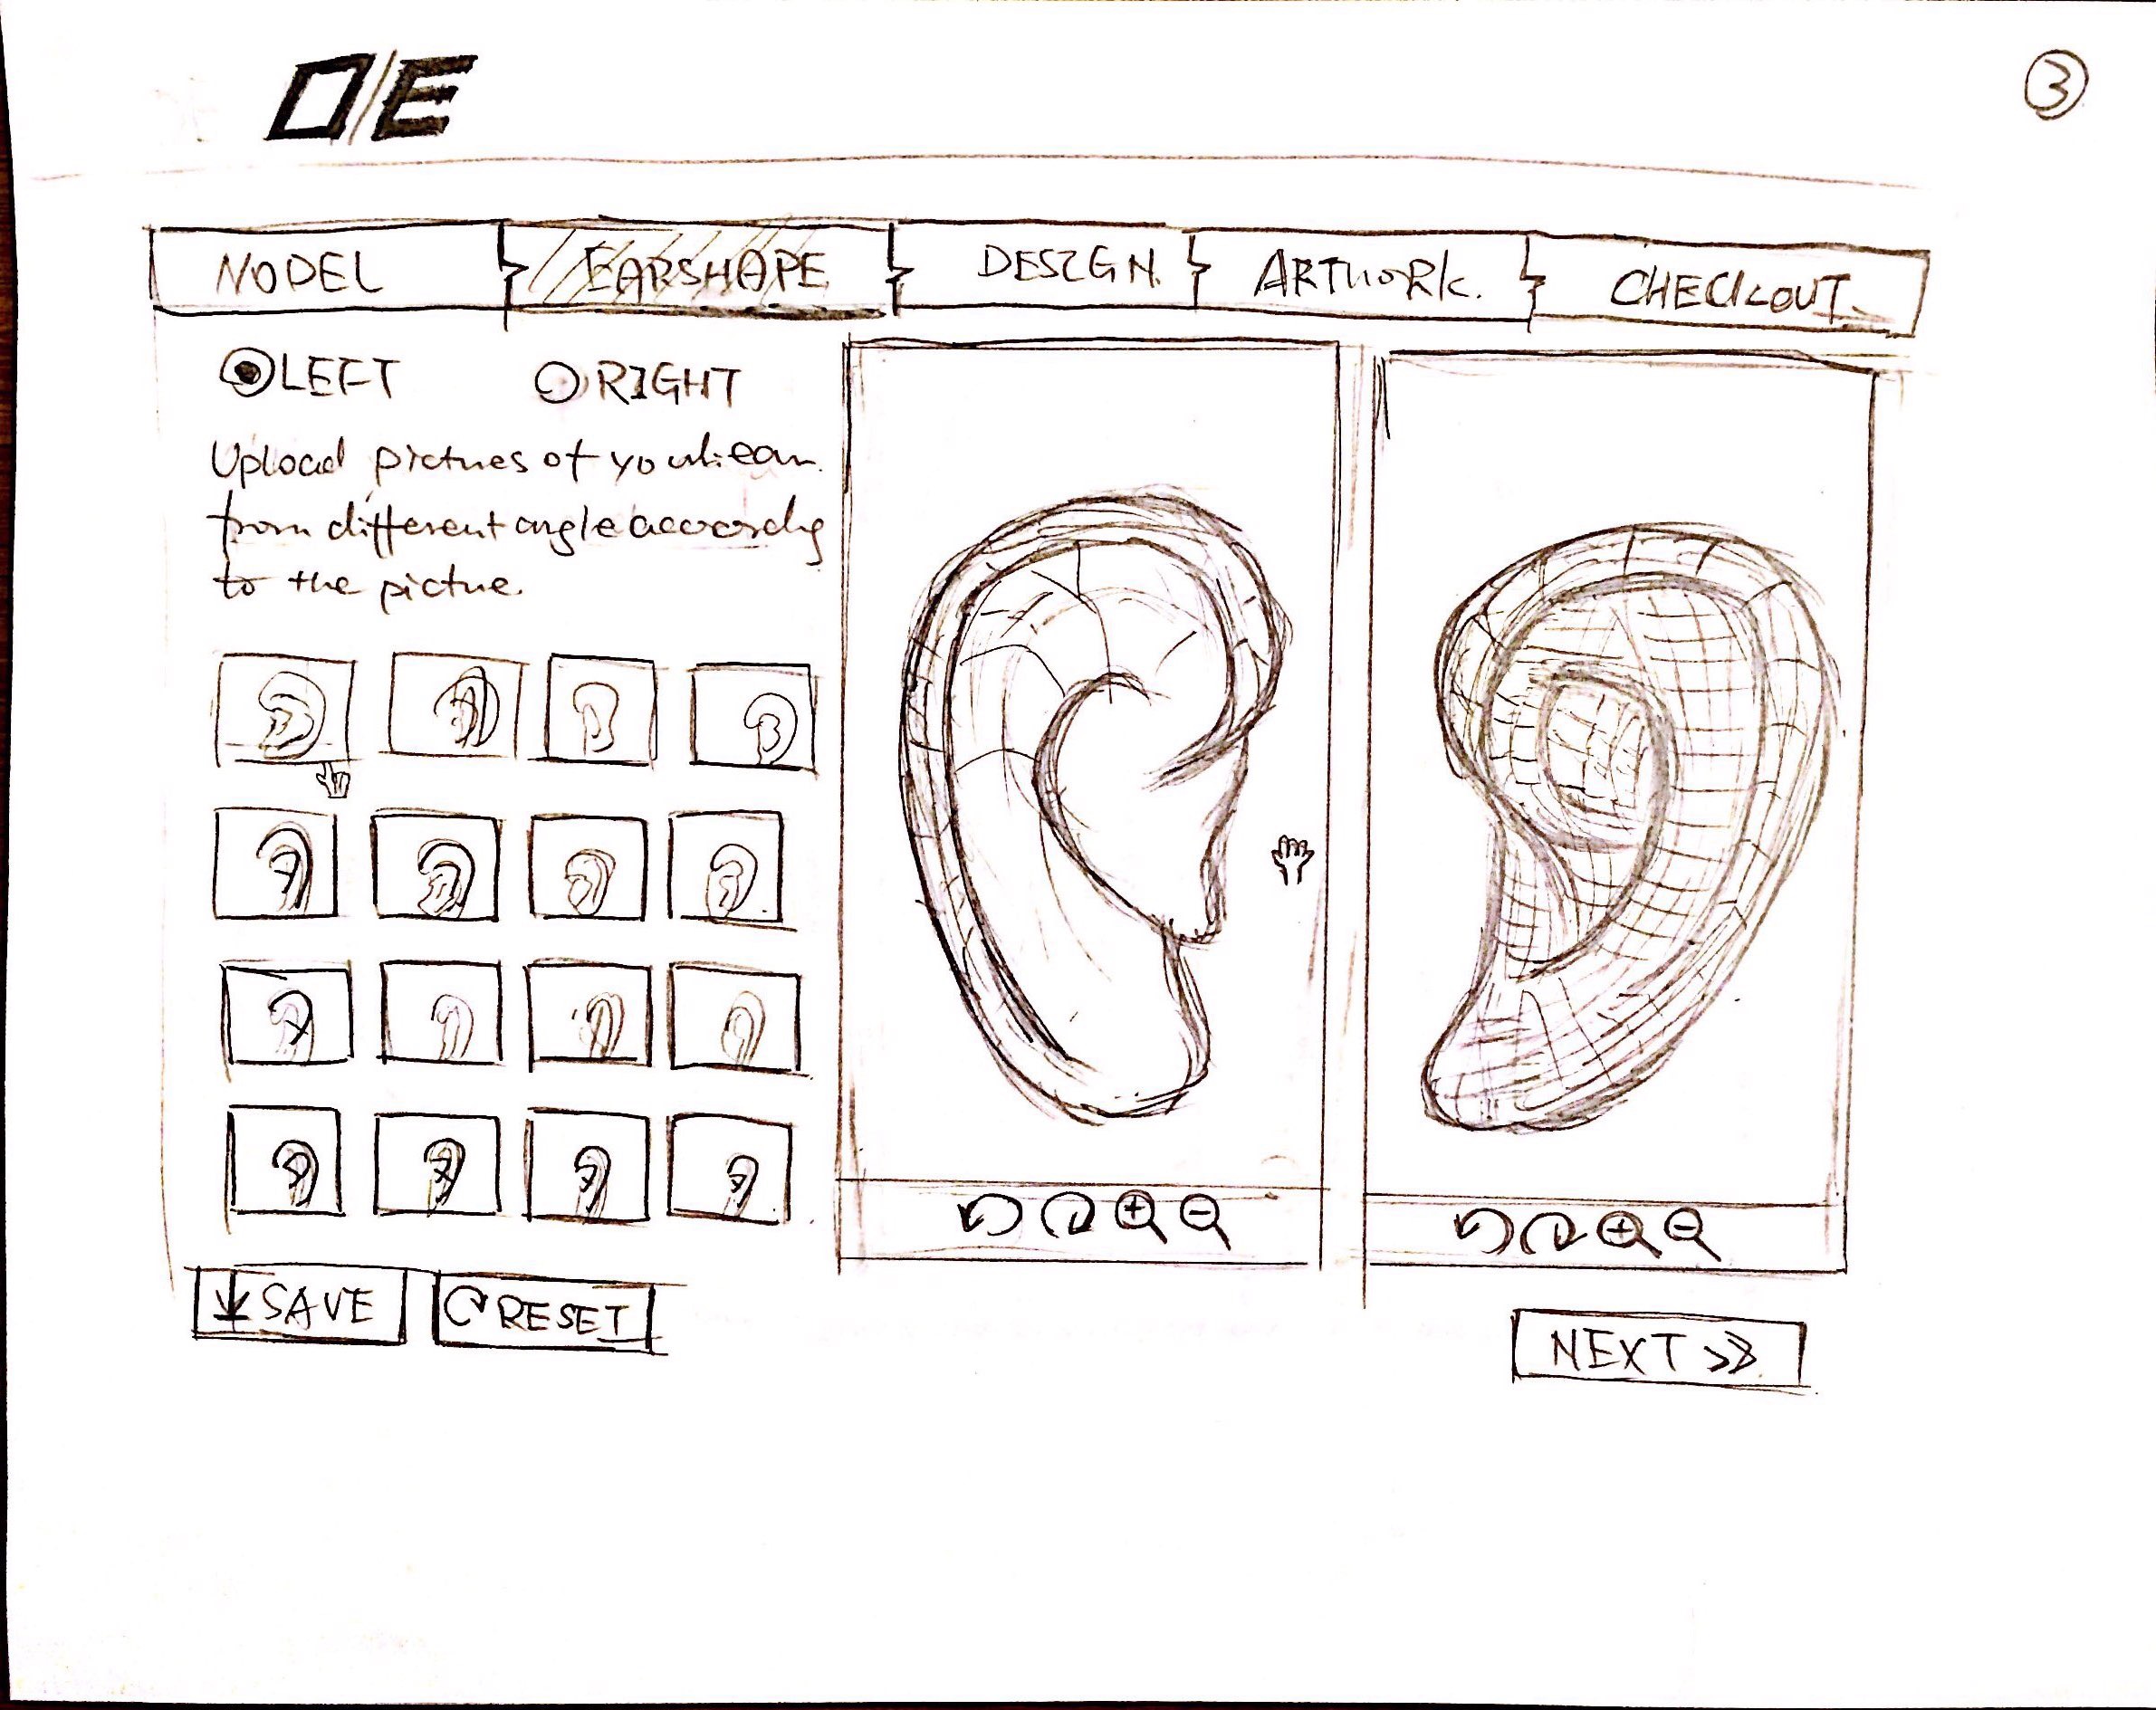 O/E
3
MODEL
EARSHAPE
DESIGN.
ARTWORK.
CHECKOUT
LEFT
RIGHT
Upload pictures of your ear
from different angle according
to the picture.
SAVE
RESET
NEXT >>